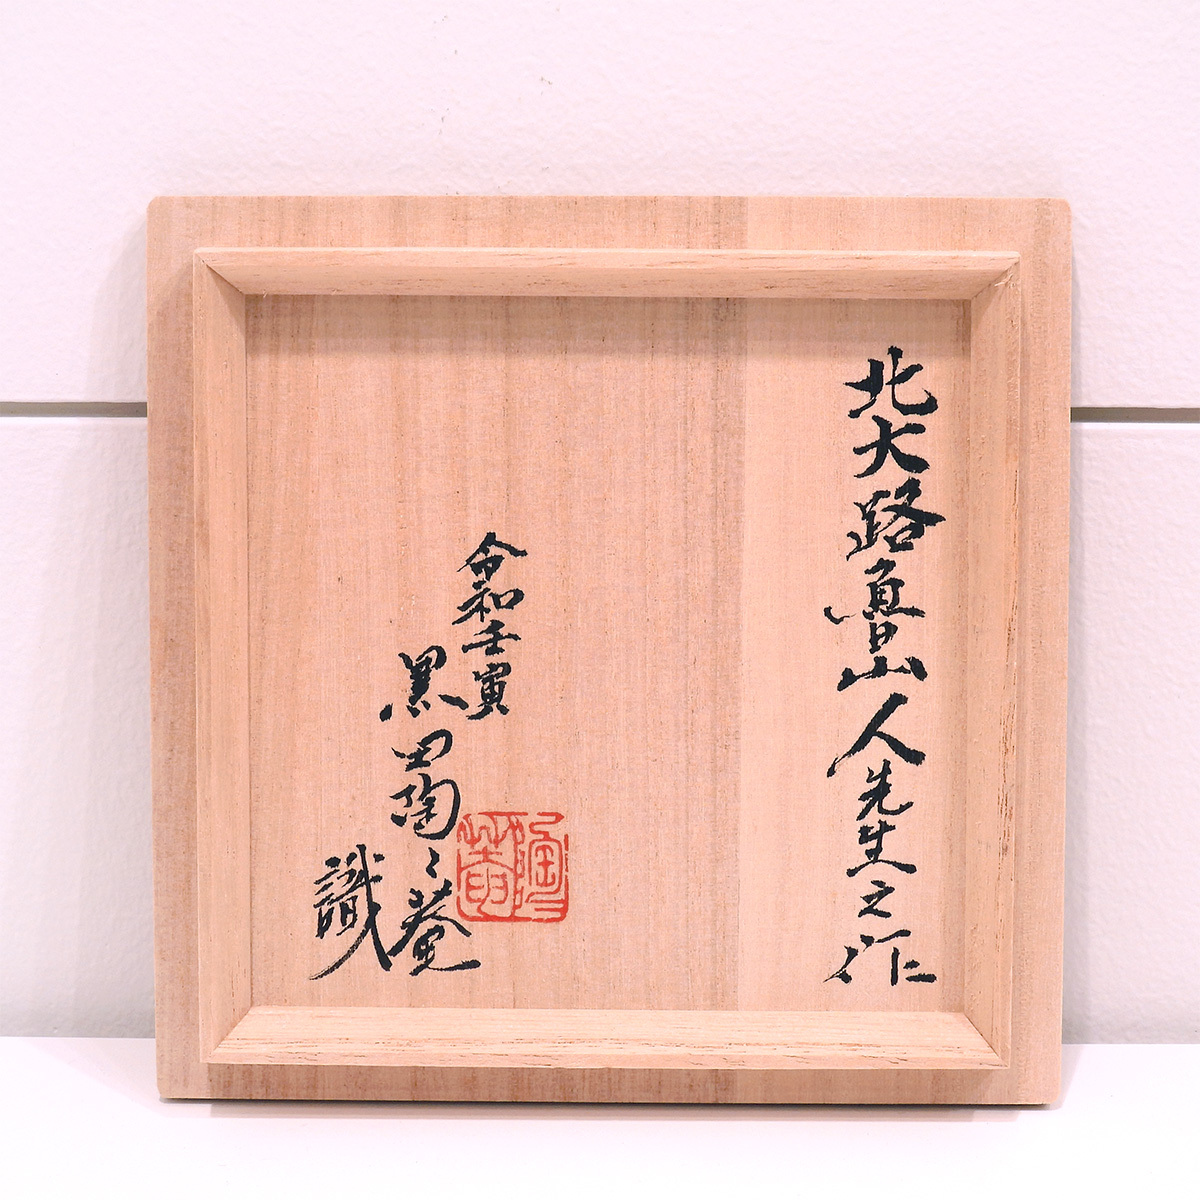 北大路魯山人先生之作
令和壬寅
黒田陶々菴
識
陶菴